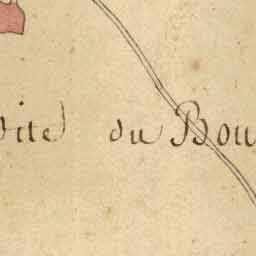 dite du Bou